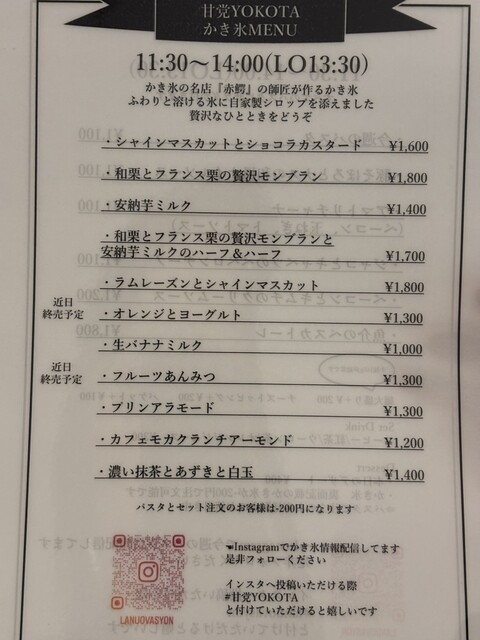 甘党YOKOTA
かき氷MENU
11:30〜14:00(LO13:30)
かき氷の名店『赤鰐』の師匠が作るかき氷
ふわりと溶ける氷に自家製シロップを添えました
贅沢なひとときをどうぞ
・シャインマスカットとショコラカスタード ¥1,600
・和栗とフランス栗の贅沢モンブラン ¥1,800
・安納芋ミルク ¥1,400
・和栗とフランス栗の贅沢モンブランと
安納芋ミルクのハーフ&ハーフ ¥1,700
・ラムレーズンとシャインマスカット ¥1,800
近日
終売予定
・オレンジとヨーグルト ¥1,300
・生バナナミルク ¥1,000
近日
終売予定
・フルーツあんみつ ¥1,300
・プリンアラモード ¥1,300
・カフェモカクランチアーモンド ¥1,200
・濃い抹茶とあずきと白玉 ¥1,400
パスタとセット注文のお客様は-200円になります
☚Instagramでかき氷情報配信してます
是非フォローください
インスタへ投稿いただける際
#甘党YOKOTA
と付けていただけると嬉しいです
LANUOVASYON